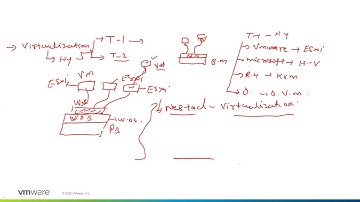 → Virtualization → T-1
Hy → T-2
ESxi VM ESxi VM
ESxi
W.S
W OS W.OS.
PS
B.M
T-1 - Hy
→ VMware → ESxi
→ microsoft → H-V
→ R.H → KVM
→ O. O.V.M.
Nested - Virtualization
vmware © 2020 VMware, Inc.